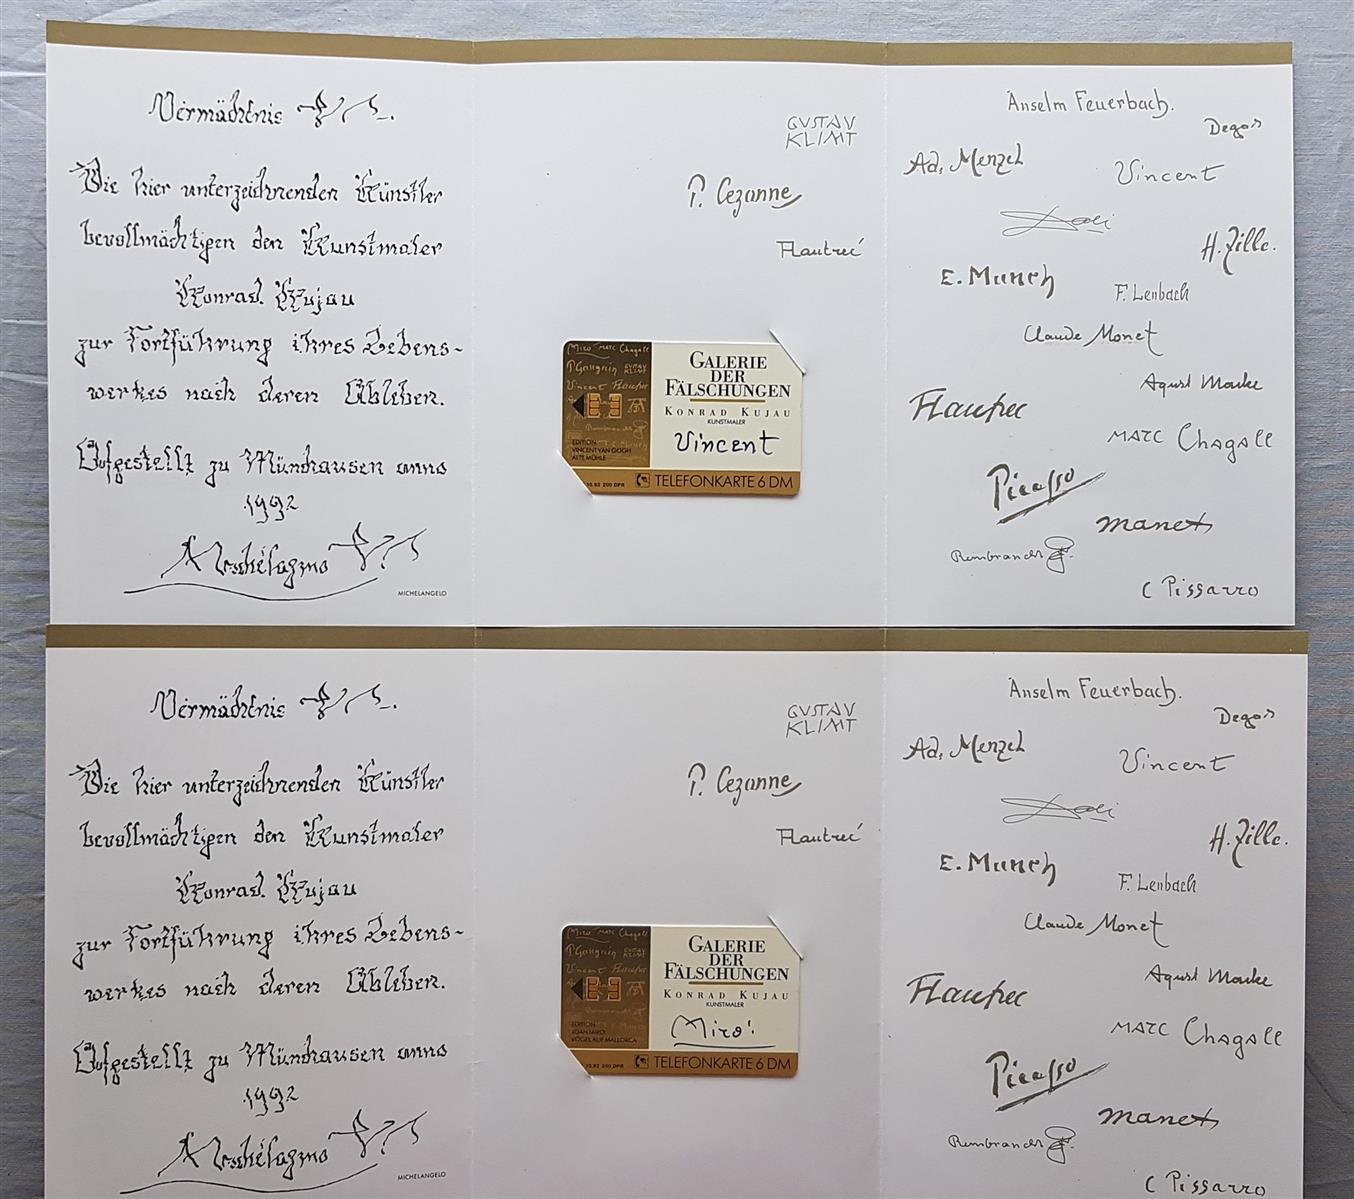 Vermächtnis
Die hier unterzeichnenden Künstler
bevollmächtigen den Kunstmaler
Konrad Kujau
zur Fortführung ihres Lebens-
werkes nach deren Ableben.
Aufgestellt zu Münchhausen anno
1992
MICHELANGELO
GUSTAV
KLIMT
P. Cezanne
Miro MARC Chagall
P Gauguin GUSTAV
KLIMT
Vincent
EDITION
VINCENT VAN GOGH
ALTE MÜHLE
GALERIE
DER
FÄLSCHUNGEN
KONRAD KUJAU
KUNSTMALER
Vincent
200 DPR
TELEFONKARTE 6 DM
Anselm Feuerbach.
Degas
Ad. Menzel
Vincent
Dali
H. Zille.
E. Munch
F. Lenbach
Claude Monet
August Macke
MARC Chagall
Picasso
manet
Rembrandt
C Pissarro
Vermächtnis
Die hier unterzeichnenden Künstler
bevollmächtigen den Kunstmaler
Konrad Kujau
zur Fortführung ihres Lebens-
werkes nach deren Ableben.
Aufgestellt zu Münchhausen anno
1992
MICHELANGELO
GUSTAV
KLIMT
P. Cezanne
Miro MARC Chagall
P Gauguin GUSTAV
KLIMT
Vincent
EDITION
JOAN MIRO
VÖGEL AUF MALLORCA
GALERIE
DER
FÄLSCHUNGEN
KONRAD KUJAU
KUNSTMALER
Miró
200 DPR
TELEFONKARTE 6 DM
Anselm Feuerbach.
Degas
Ad. Menzel
Vincent
Dali
H. Zille.
E. Munch
F. Lenbach
Claude Monet
August Macke
MARC Chagall
Picasso
manet
Rembrandt
C Pissarro